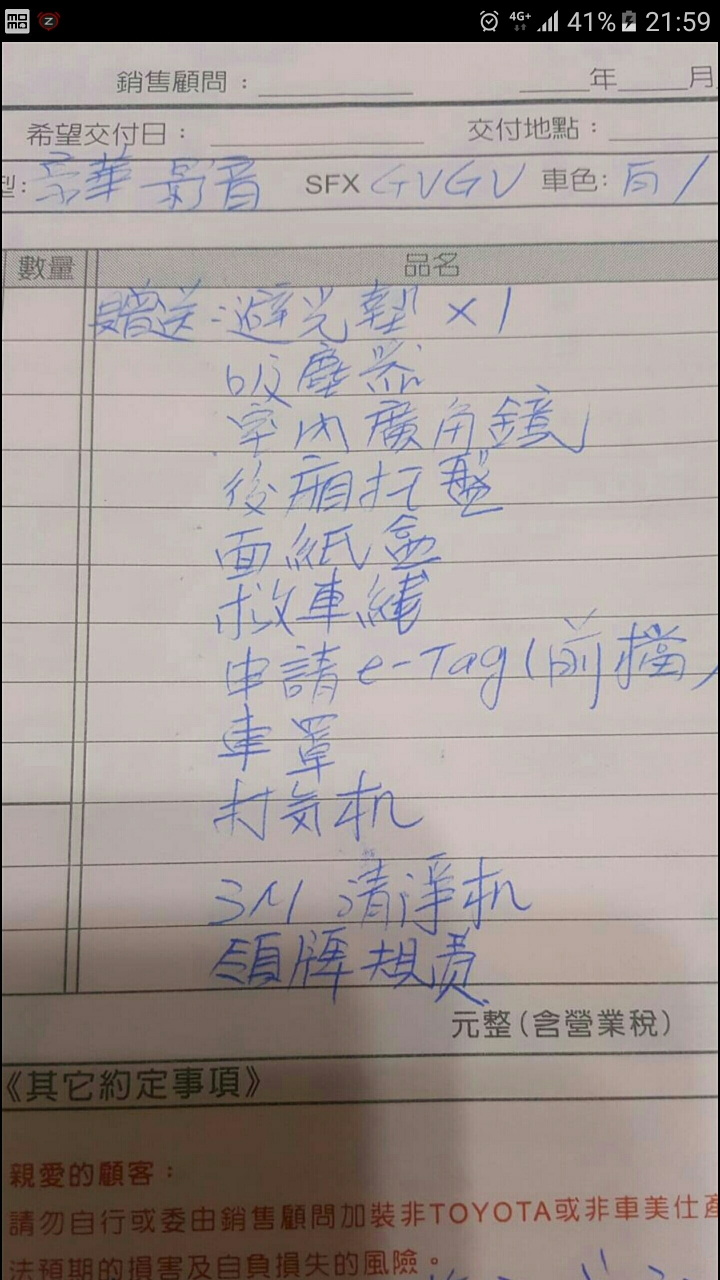 momo
Z
4G+ 41% 21:59
銷售顧問：
年 月
希望交付日：
交付地點：
型: 豪華 影音 SFX GVGV 車色: 白/
數量
品名
贈送:避光墊 ×1
吸塵器
室內廣角鏡
後廂托盤
面紙盒
救車線
申請e-Tag(前檔)
車罩
打気机
3M 清淨机
領牌規费
元整(含營業稅)
《其它約定事項》
親愛的顧客：
請勿自行或委由銷售顧問加裝非TOYOTA或非車美仕產
法預期的損害及自負損失的風險。